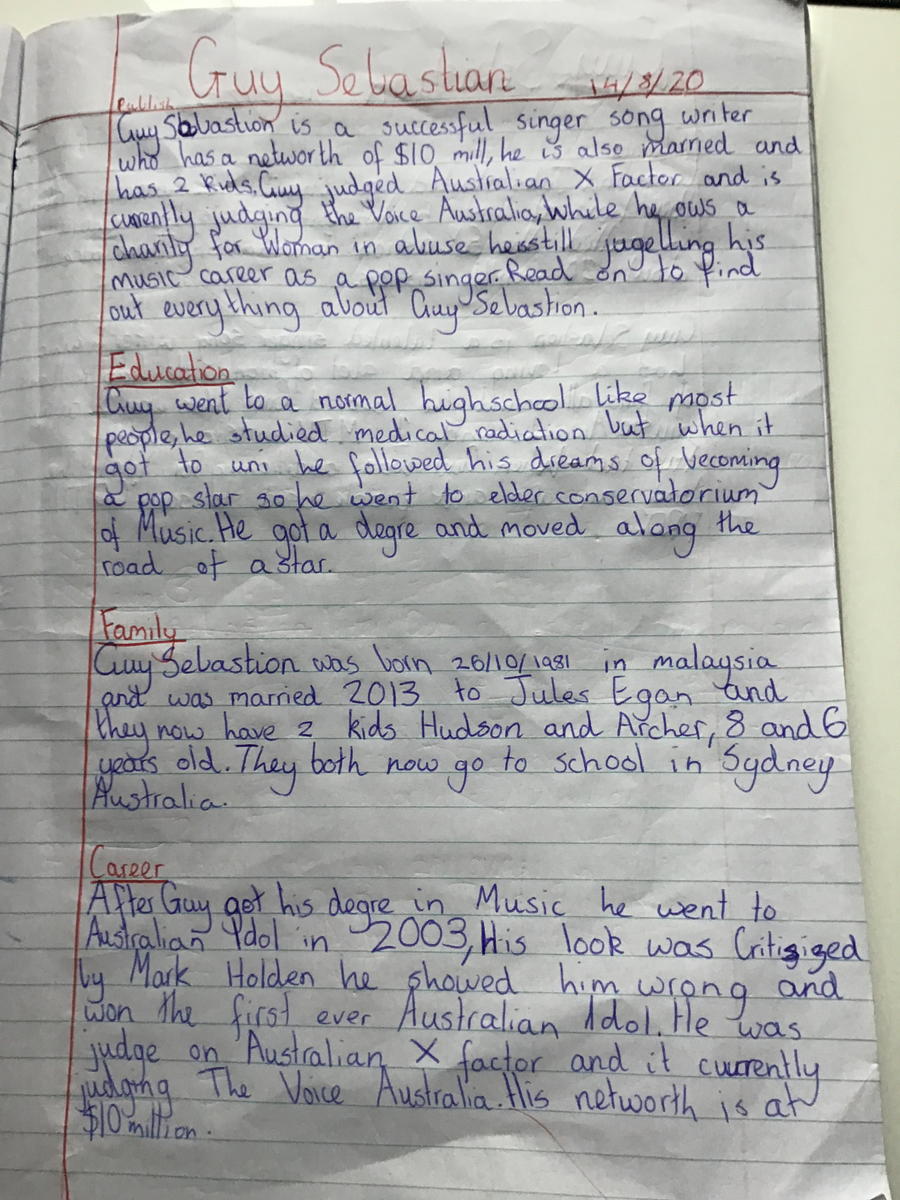 Guy Sebastian 14/8/20
Publish
Guy Sabastion is a successful singer song writer
who has a networth of $10 mill, he is also married and
has 2 kids. Guy judged Australian X Factor and is
currently judging the Voice Australia, While he ows a
charity for Woman in abuse heisstill jugelling his
music career as a pop singer. Read on to find
out everything about Guy Sebastion.
Education
Guy went to a normal highschool like most
people, he studied medical radiation but when it
got to uni he followed his dreams of becoming
a pop star so he went to elder conservatorium
of Music. He got a degre and moved along the
road of a star.
Family
Guy Sebastion was born 26/10/1981 in malaysia
and was married 2013 to Jules Egan and
they now have 2 kids Hudson and Archer, 8 and 6
years old. They both now go to school in Sydney
Australia.
Career
After Guy got his degre in Music he went to
Australian Idol in 2003, His look was Critisized
by Mark Holden he showed him wrong and
won the first ever Australian Idol. He was
judge on Australian X factor and it currently
judging The Voice Australia. His networth is at
$10 million.